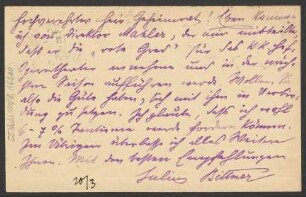 Hochverehrter Herr Geheimrat! Eben komme
ich von Direktor Mahler, der mir mitteilte
daß er die „rote Gred" für das k.k. Hof-
operntheater annehme und in der nächsten
Saison aufführen werde. Wollen Sie
also die Güte haben, sich mit ihm in Verbin-
dung zu setzen. Ich glaube, daß ich wohl
6-7 % Tantieme werde fordern können.
Im Übrigen überlasse ich alles Weitere
Ihnen. Mit den besten Empfehlungen
Julius Bittner
20/3